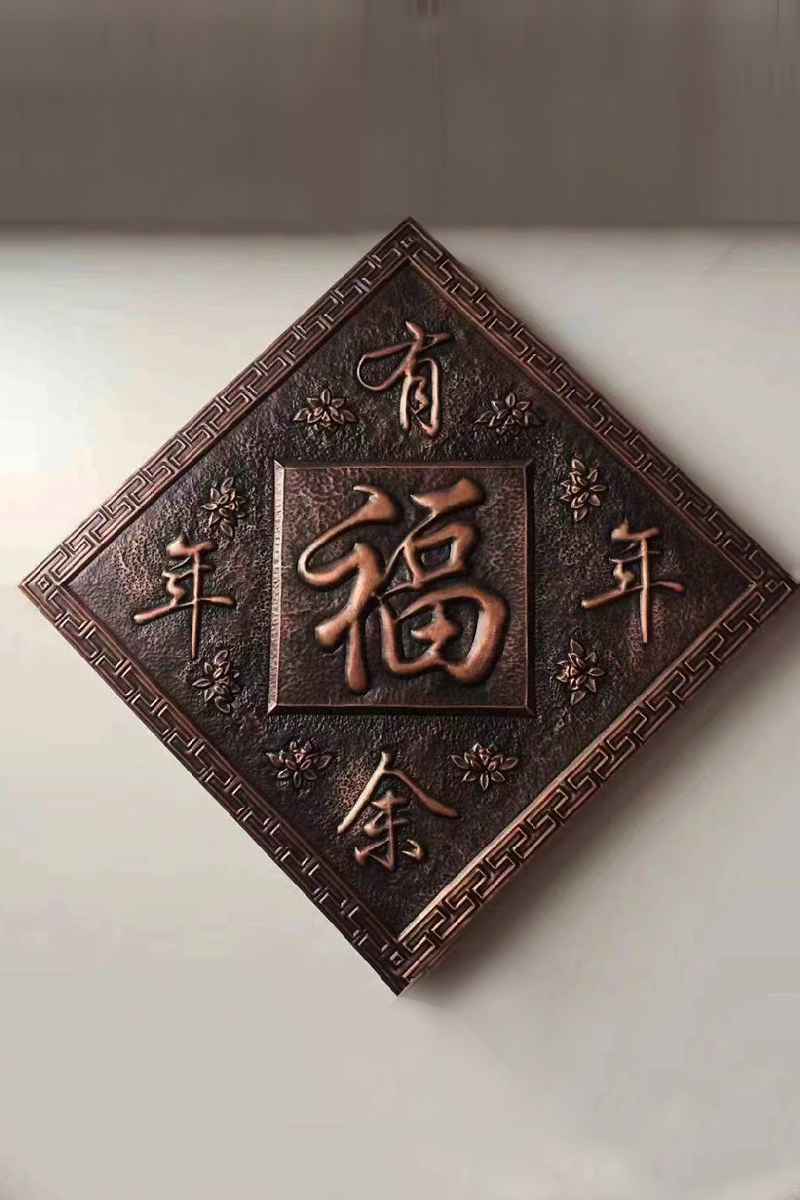 有
年
福
年
余